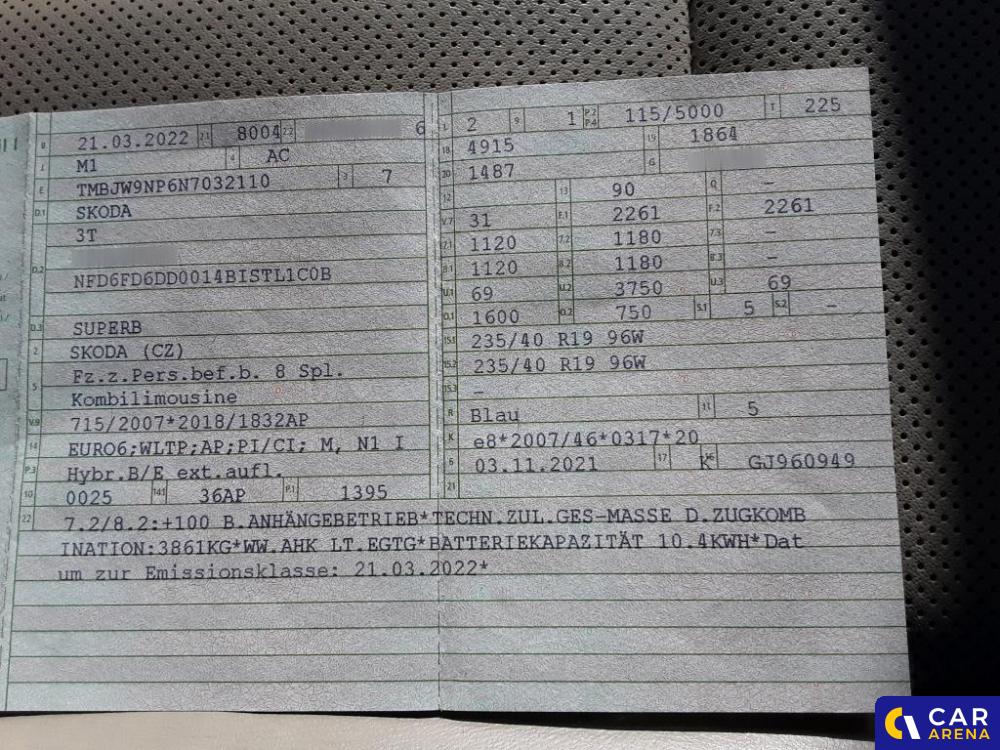 B 21.03.2022 2.1 8004 2.2 6
J M1 4 AC
E TMBJW9NP6N7032110 3 7
D.1 SKODA
3T
D.2
NFD6FD6DD0014BISTL1C0B
D.3 SUPERB
2 SKODA (CZ)
5 Fz.z.Pers.bef.b. 8 Spl.
Kombilimousine
V.9 715/2007*2018/1832AP
14 EURO6;WLTP;AP;PI/CI; M, N1 I
P.3 Hybr.B/E ext.aufl.
10 0025 14.1 36AP P.1 1395
L 2 9 1 P.2 P.4 115/5000 T 225
18 4915 19 1864
20 1487 G
12 13 90 Q –
V.7 31 F.1 2261 F.2 2261
7.1 1120 7.2 1180 7.3 –
8.1 1120 8.2 1180 8.3 –
U.1 69 U.2 3750 U.3 69
O.1 1600 O.2 750 S.1 5 S.2 –
15.1 235/40 R19 96W
15.2 235/40 R19 96W
15.3 –
R Blau 11 5
K e8*2007/46*0317*20
6 03.11.2021 17 K 16 GJ960949
21
22 7.2/8.2:+100 B.ANHÄNGEBETRIEB*TECHN.ZUL.GES-MASSE D.ZUGKOMB
INATION:3861KG*WW.AHK LT.EGTG*BATTERIEKAPAZITÄT 10.4KWH*Dat
um zur Emissionsklasse: 21.03.2022*
CAR
ARENA